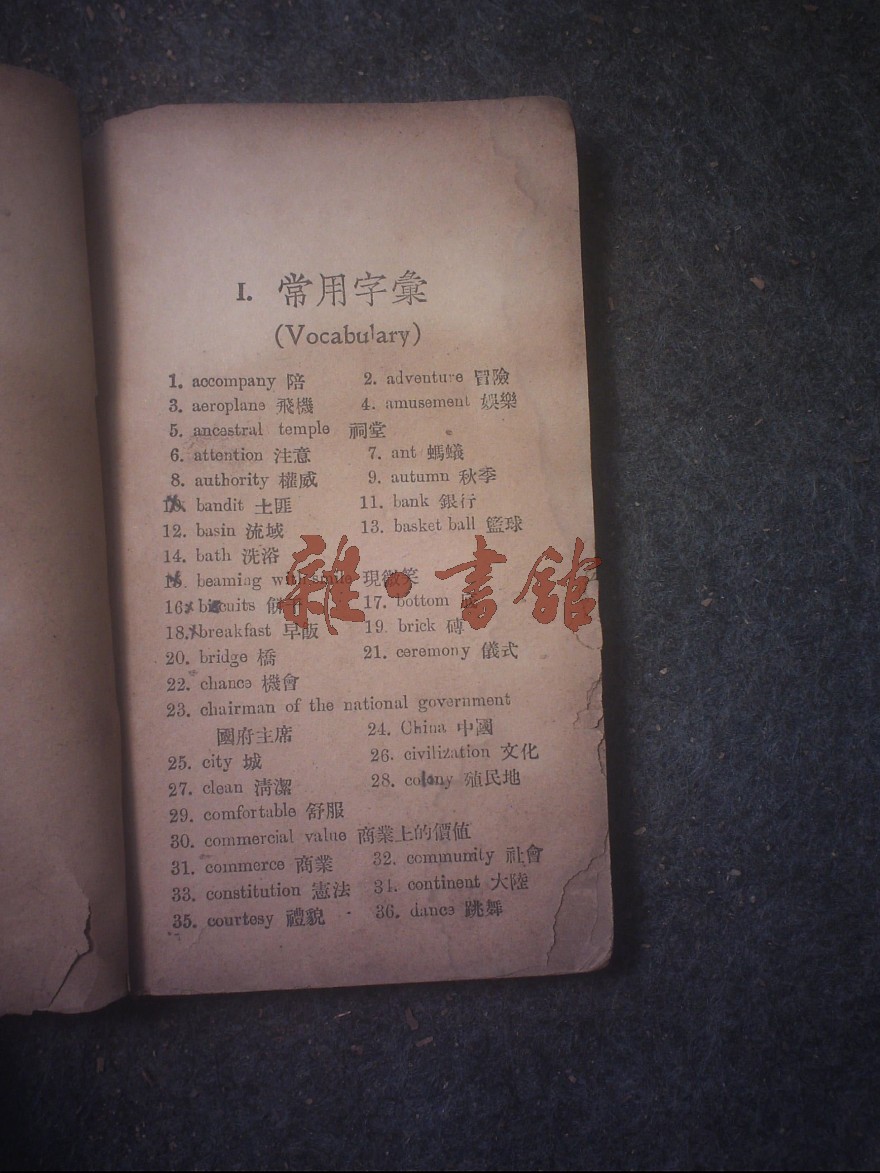 I. 常用字彙
(Vocabulary)
1. accompany 陪 2. adventure 冒險
3. aeroplane 飛機 4. amusement 娛樂
5. ancestral temple 祠堂
6. attention 注意 7. ant 螞蟻
8. authority 權威 9. autumn 秋季
10. bandit 土匪 11. bank 銀行
12. basin 流域 13. basket ball 籃球
14. bath 洗浴
15. beaming with smile 現微笑
16. biscuits 餅干 17. bottom 底
18. breakfast 早飯 19. brick 磚
20. bridge 橋 21. ceremony 儀式
22. chance 機會
23. chairman of the national government
國府主席 24. China 中國
25. city 城 26. civilization 文化
27. clean 清潔 28. colony 殖民地
29. comfortable 舒服
30. commercial value 商業上的價値
31. commerce 商業 32. community 社會
33. constitution 憲法 34. continent 大陸
35. courtesy 禮貌 36. dance 跳舞
雜·書館